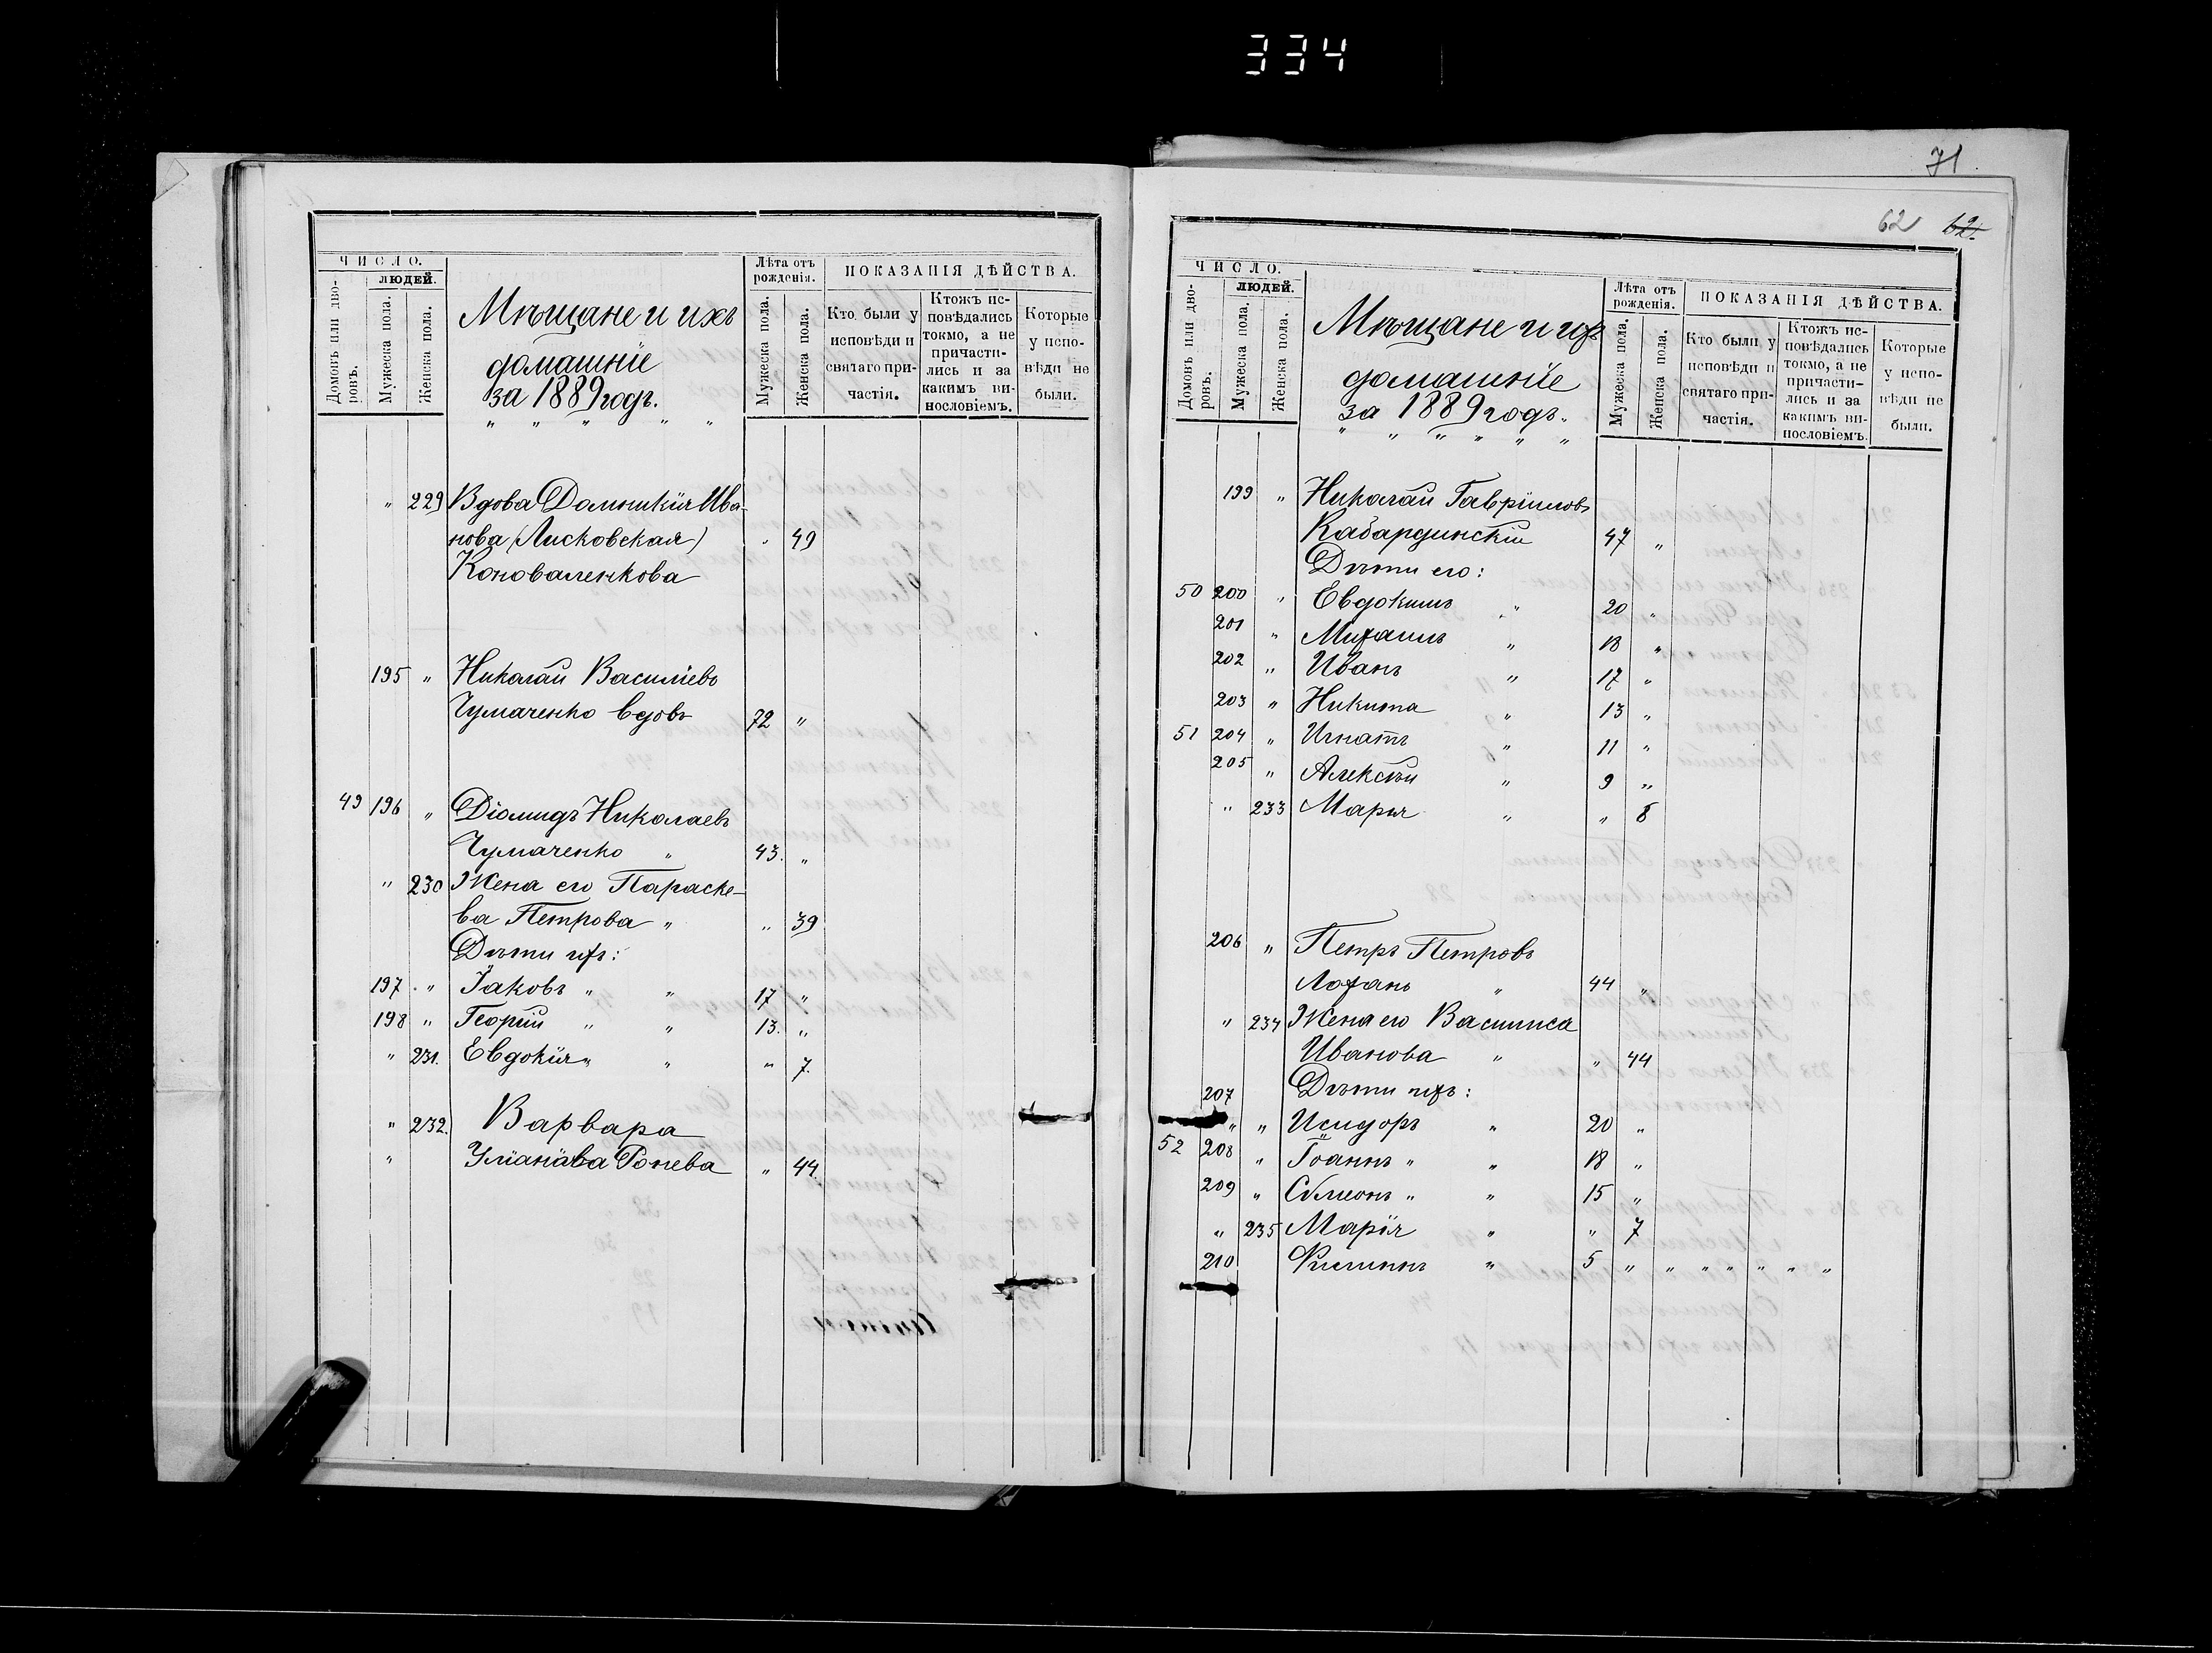 334
71
62 62.
ЧИСЛО.
ЛЮДЕЙ.
Домовъ или дворовъ.
Мужеска пола.
Женска пола.
Мѣщане и ихъ
домашніе
за 1889 годъ.
" " " " "
Лѣта отъ рожденія.
Мужеска пола.
Женска пола.
ПОКАЗАНІЯ ДѢЙСТВА.
Кто были у исповѣди и святаго причастія.
Ктожъ исповѣдались токмо, а не причастились и за какимъ винословіемъ.
Которые у исповѣди не были.
" 229 Вдова Домникія Ива-
нова (Лисковская) " 49
Коноваленкова
195 " Николай Василіевъ
Чумаченко вдовъ 72 "
49 196 " Діомидъ Николаевъ
Чумаченко " 43. "
" 230 Жена его Параске-
ва Петрова " " 39
Дѣти ихъ:
197 " Іаковъ " " 17 "
198 " Георгій " " 13. "
" 231. Евдокія " " " 7.
" 232. Варвара
" 44.
ЧИСЛО.
ЛЮДЕЙ.
Домовъ или дворовъ.
Мужеска пола.
Женска пола.
Мѣщане и ихъ
домашніе
за 1889 годъ.
" " " " " "
Лѣта отъ рожденія.
Мужеска пола.
Женска пола.
ПОКАЗАНІЯ ДѢЙСТВА.
Кто были у исповѣди и святаго причастія.
Ктожъ исповѣдались токмо, а не причастились и за какимъ винословіемъ.
Которые у исповѣди не были.
199 " Николай Гавріиловъ
Кабардинскій 47 "
Дѣти его:
50 200 " Евдокимъ " 20 "
201 " Михаилъ " 18 "
202 " Иванъ " 17 "
203 " Никита " 13 "
51 204 " Игнатъ " 11 "
205 " Алексѣй " 9 "
" 233 Марія " " 8
206 " Петръ Петровъ
Лоханъ " 44 "
" 234 Жена его Василиса
Иванова " " 44
207 Дѣти ихъ:
" " Исидоръ " 20 "
52 208 " Іоаннъ " " 18 "
209 " Сѵмеонъ " " 15 "
" 235 Марія " " 7
210 Филиппъ " 5 " " " " " " "